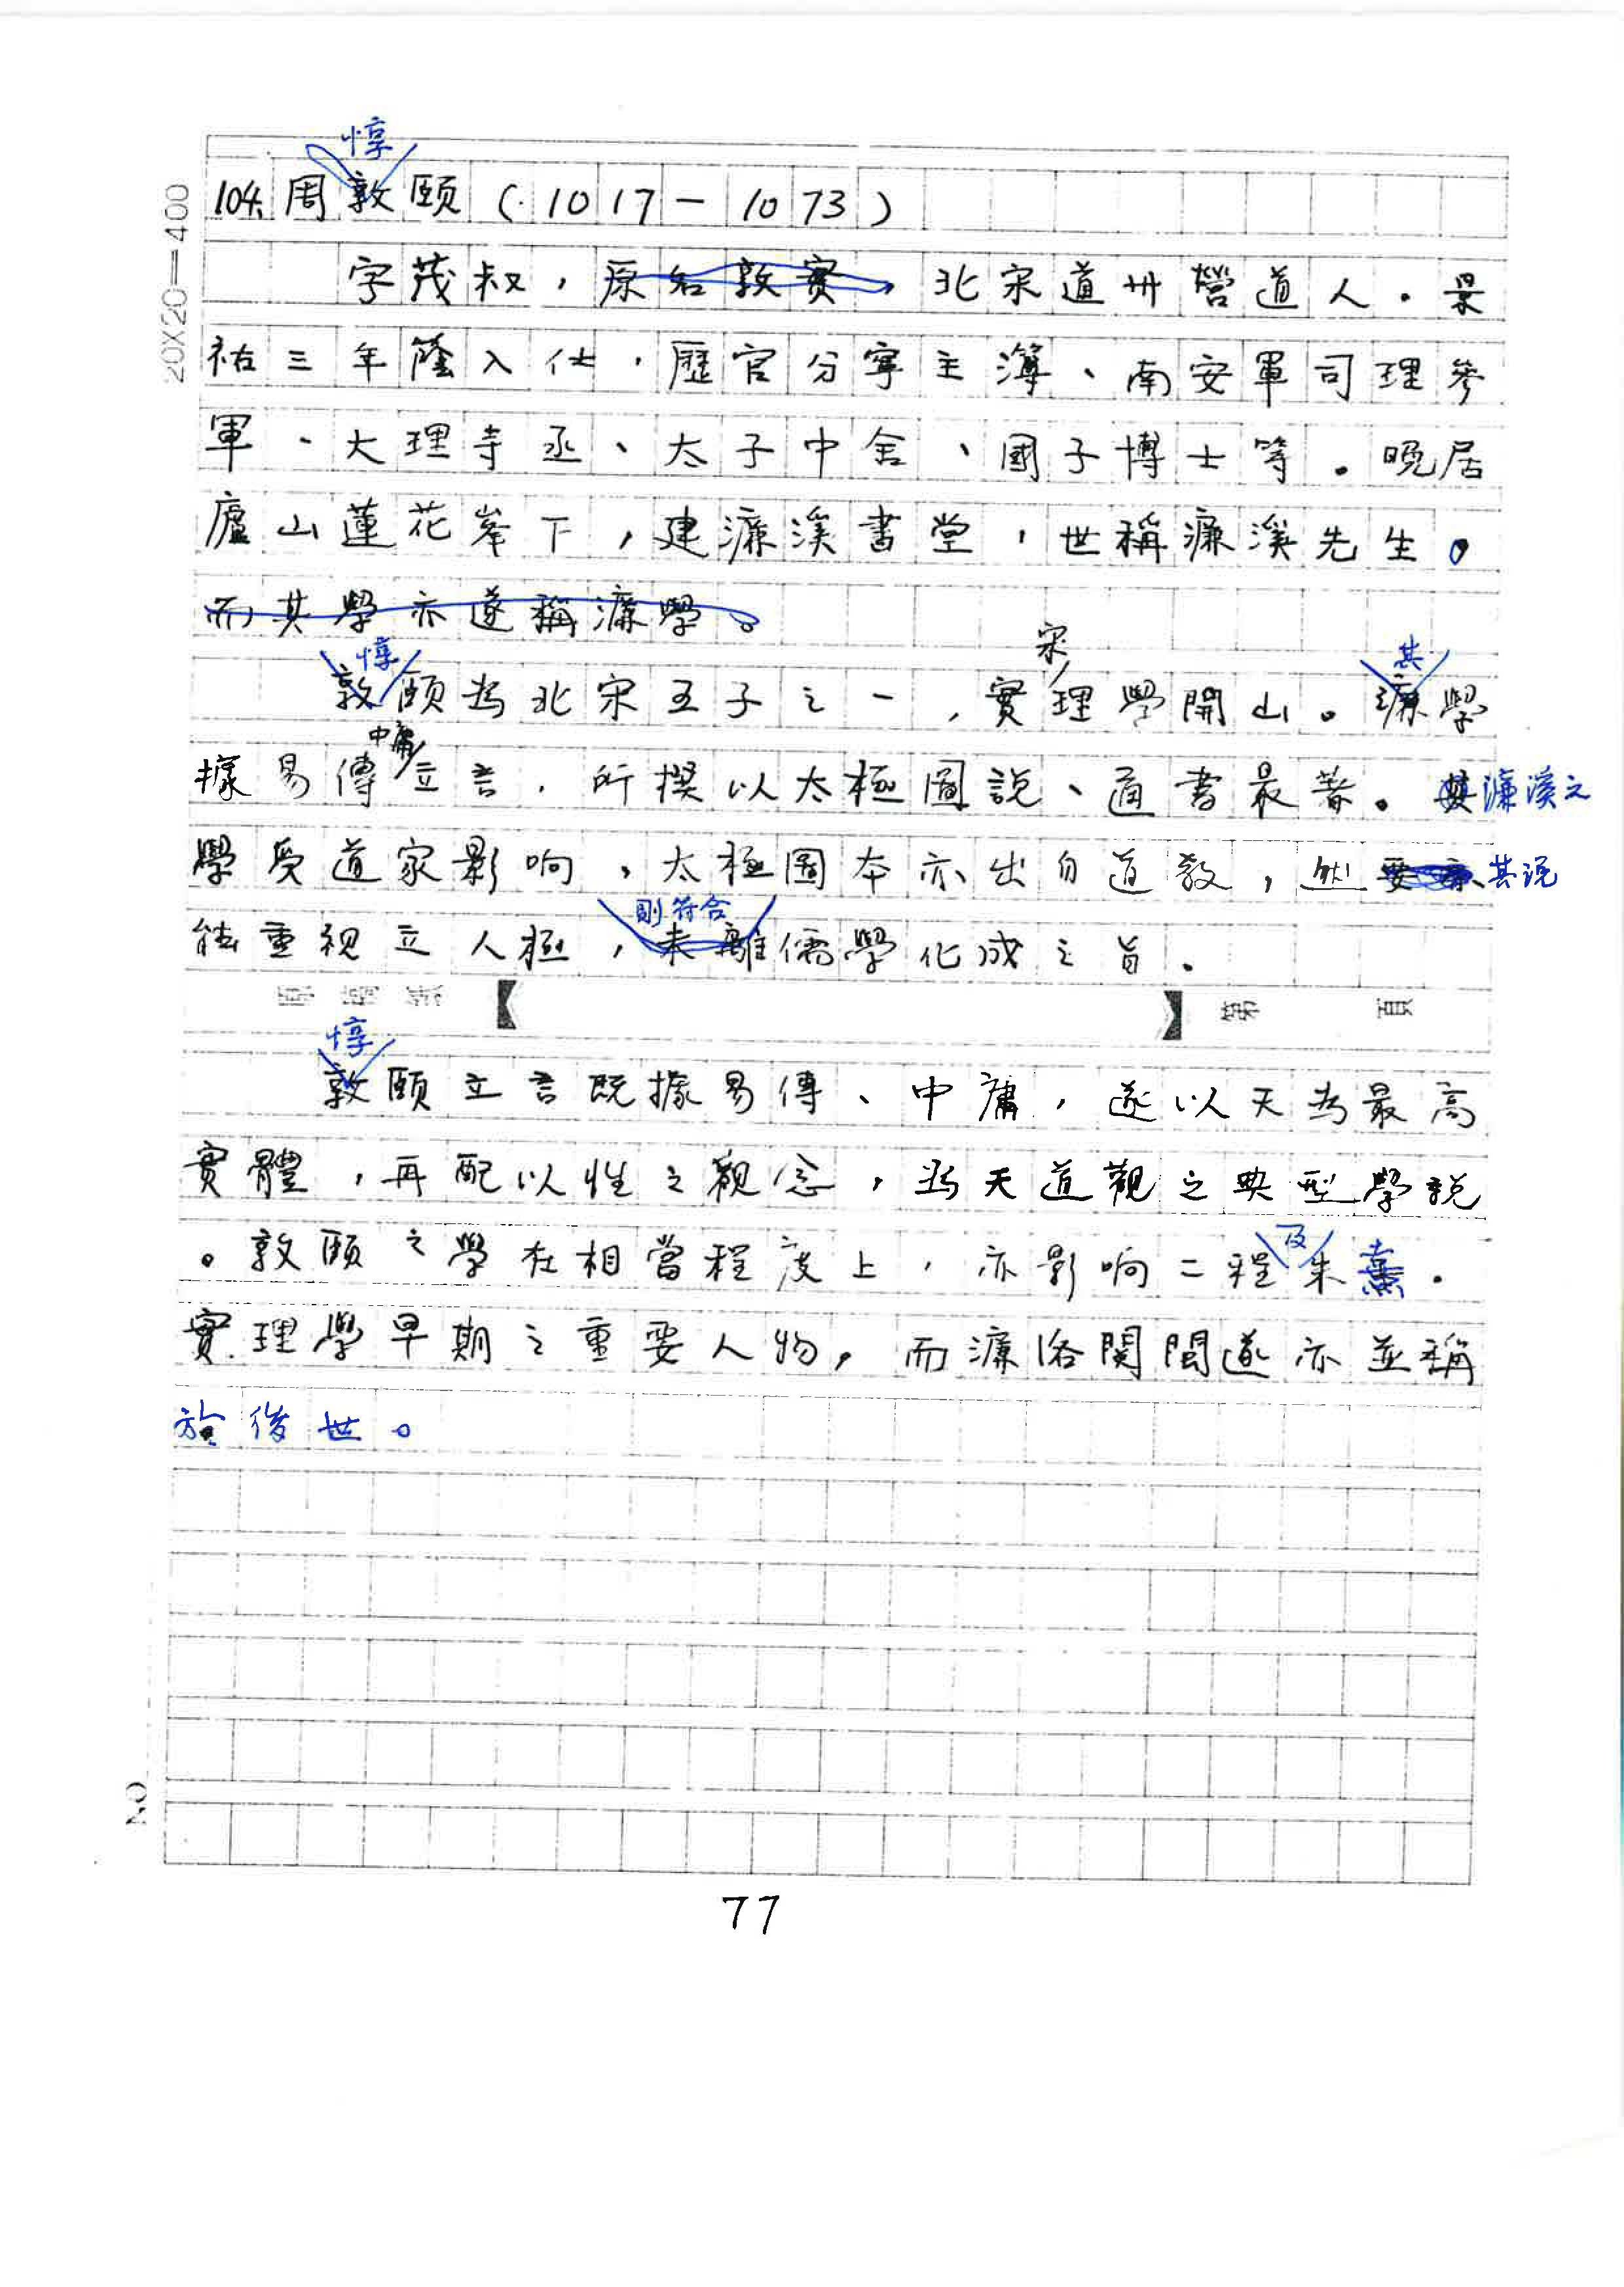 惇
104.周敦頤(1017-1073)
字茂叔,原名敦實,北宋道州營道人。景
祐三年蔭入仕,歷官分寧主簿、南安軍司理參
軍、大理寺丞、太子中舍、國子博士等。晚居
廬山蓮花峯下,建濂溪書堂,世稱濂溪先生。
而其學亦遂稱濂學。
惇 宋 其
敦頤為北宋五子之一,實理學開山。濂學
中庸
據易傳立言,所撰以太極圖說、通書最著。其濂溪之
學受道家影响,太極圖本亦出自道教,然要亦其說
則符合
能重視立人極,未離儒學化成之旨。
第 頁
惇
敦頤立言既據易傳、中庸,遂以天為最高
實體,再配以性之觀念,為天道觀之典型學說
及
。敦頤之學在相當程度上,亦影响二程朱熹。
實理學早期之重要人物,而濂洛関閩遂亦並稱
於後世。
20X20=400
NO.
77